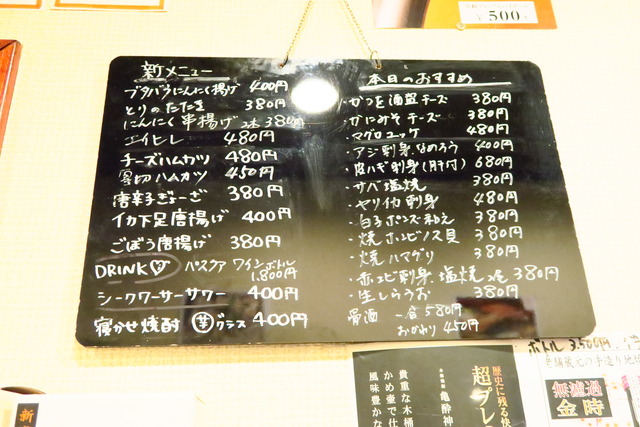 ¥500
新メニュー
ブタバラにんにく揚げ 400円
とりのたたき 380円
にんにく串揚げ 2本 380円
エイヒレ 480円
チーズハムカツ 480円
厚切ハムカツ 450円
唐辛子ぎょーざ 380円
イカ下足唐揚げ 400円
ごぼう唐揚げ 380円
DRINK
パスクア ワインボトル
1,800円
シークワーサーサワー 400円
寝かせ焼酎 芋 グラス 400円
本日のおすすめ
・かつを酒盗チーズ 380円
・かにみそチーズ 380円
・マグロユッケ 480円
・アジ刺身、なめろう 400円
・皮ハギ刺身(肝付) 680円
・サバ塩焼 380円
・ヤリイカ刺身 480円
・白子ポンズ和え 380円
・焼ホンビノス貝 380円
・焼ハマグリ 380円
・赤エビ刺身、塩焼 2尾 380円
・生しらうお 380円
骨酒 一合 580円
おかわり 450円
ボトル 3,500円
老舗蔵元の手造り地
無濾過
金時
歴史に残る快
超プレ
亀酣神
貴重な木桶
かめ壺で仕
風味豊かな